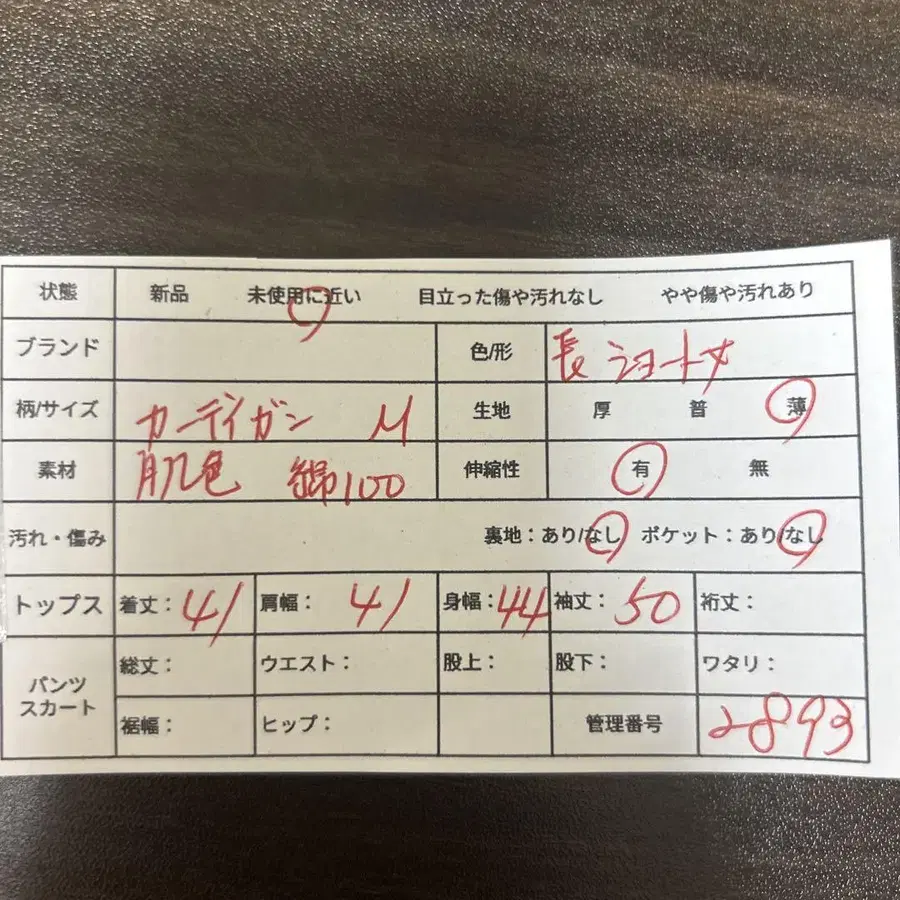 状態 新品 未使用に近い 目立った傷や汚れなし やや傷や汚れあり
ブランド 色/形 長 ショート丈
柄/サイズ カーディガン M 生地 厚 普 薄
素材 肌色 綿100 伸縮性 有 無
汚れ・傷み 裏地:あり/なし ポケット:あり/なし
トップス 着丈:41 肩幅:41 身幅:44 袖丈:50 裄丈:
パンツ スカート 総丈: ウエスト: 股上: 股下: ワタリ:
裾幅: ヒップ: 管理番号 2893